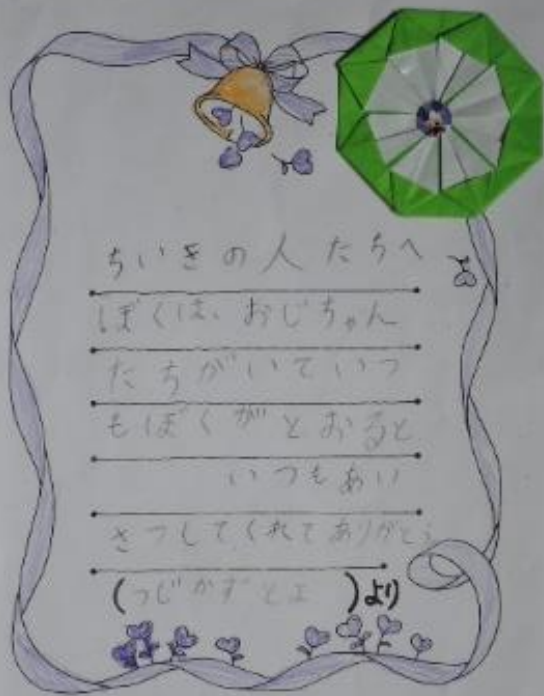 ちいきの人たちへ
ぼくは、おじちゃん
たちがいていつ
もぼくがとおると
いつもあい
さつしてくれてありがとう
(つじかずとよ)より